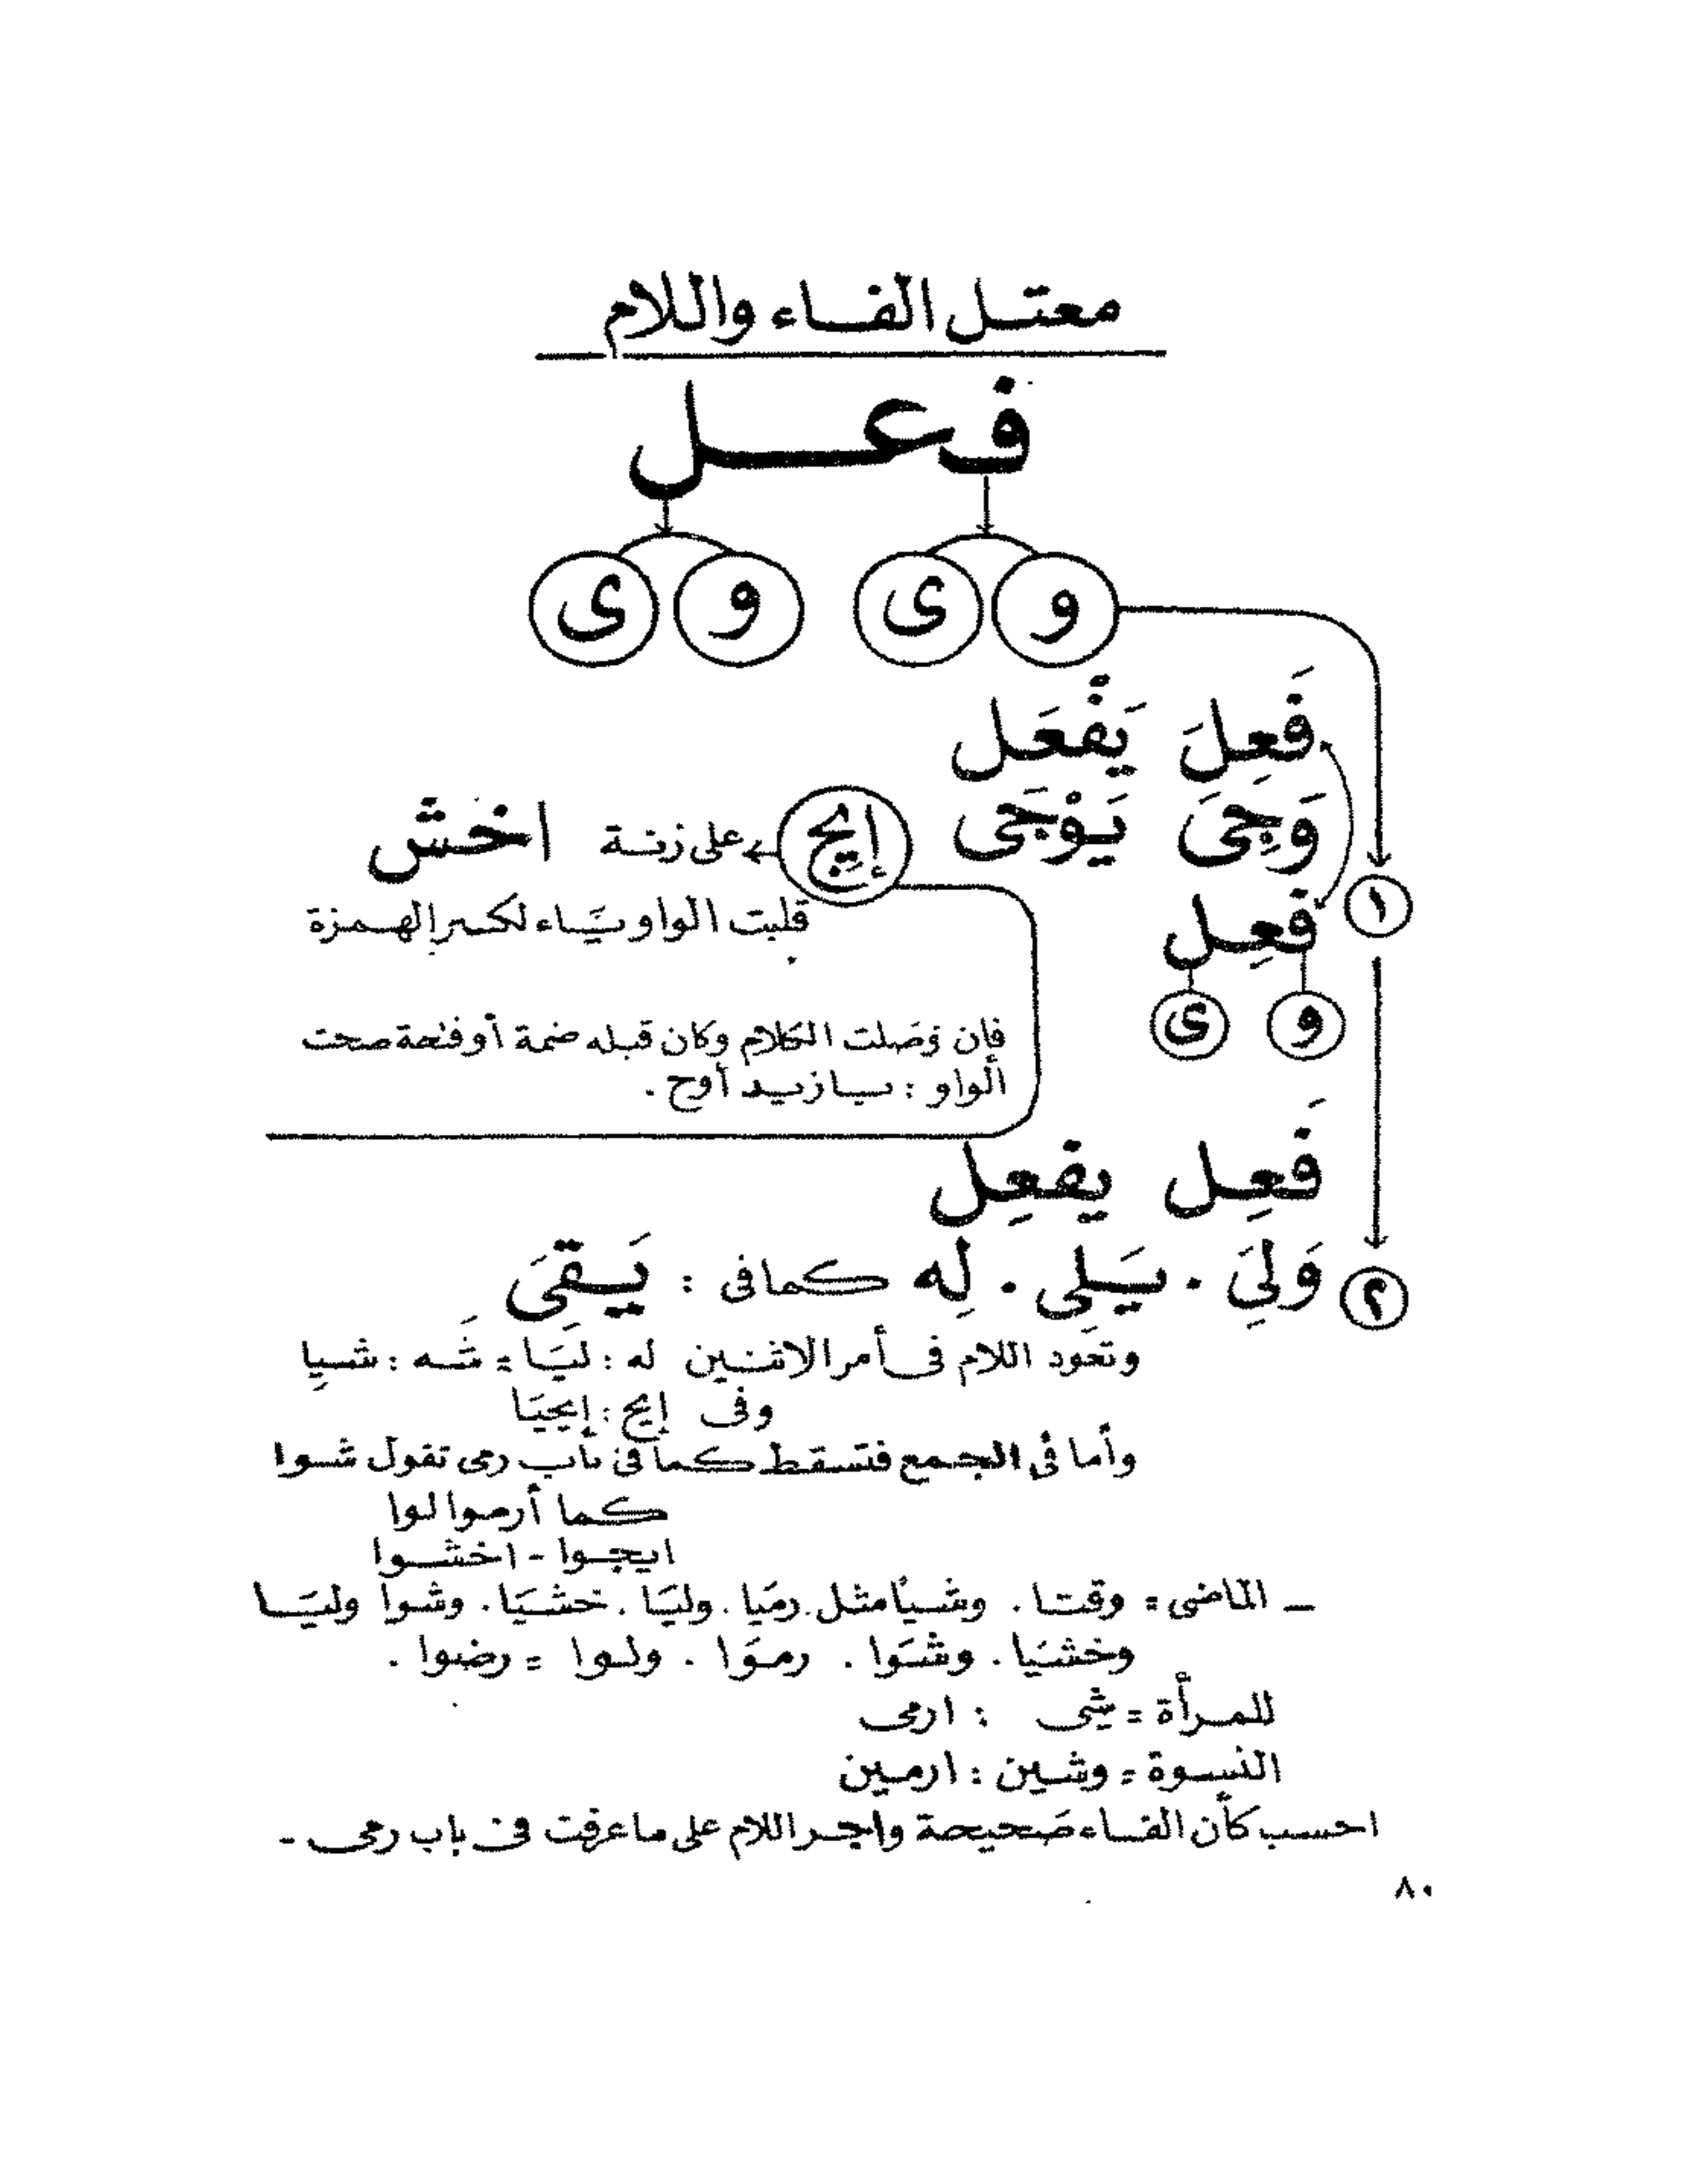 معتل الفاء واللام
فعل
و ى و ى
فَعِلَ يَفْعَل
وَجِىَ يَوْجَى إيج على زنة اخش
١ فَعِل قلبت الواو ياء لكسر الهمزة
و ى
فإن وَصَلت الكلام وكان قبله ضمة أو فتحة صحت
الواو : يا زيد أوج .
فَعِل يفعِل
٢ وَلِىَ . يَلِى . لِه كما فى : يَقِىَ
وتعود اللام فى أمر الاثنين له : لِيَا = شَه : شيا
وفى إيج : إيجيَا
وأما فى الجمع فتسقط كما فى باب رمى تقول شوا
كما أرموا لوا
ايجوا - اخشوا
_ الماضى = وقتا . وشيَا مثل رميَا . وليَا . خشيَا . وشوا وليَا
وخشيَا . وشَوا . رموَا . ولوا = رضوا .
للمرأة = شِى : ارمى
النسوة = وشين : ارمين
احسب كأن الفاء صَحيحة واجر اللام على ما عرفت فى باب رمى -
٨٠